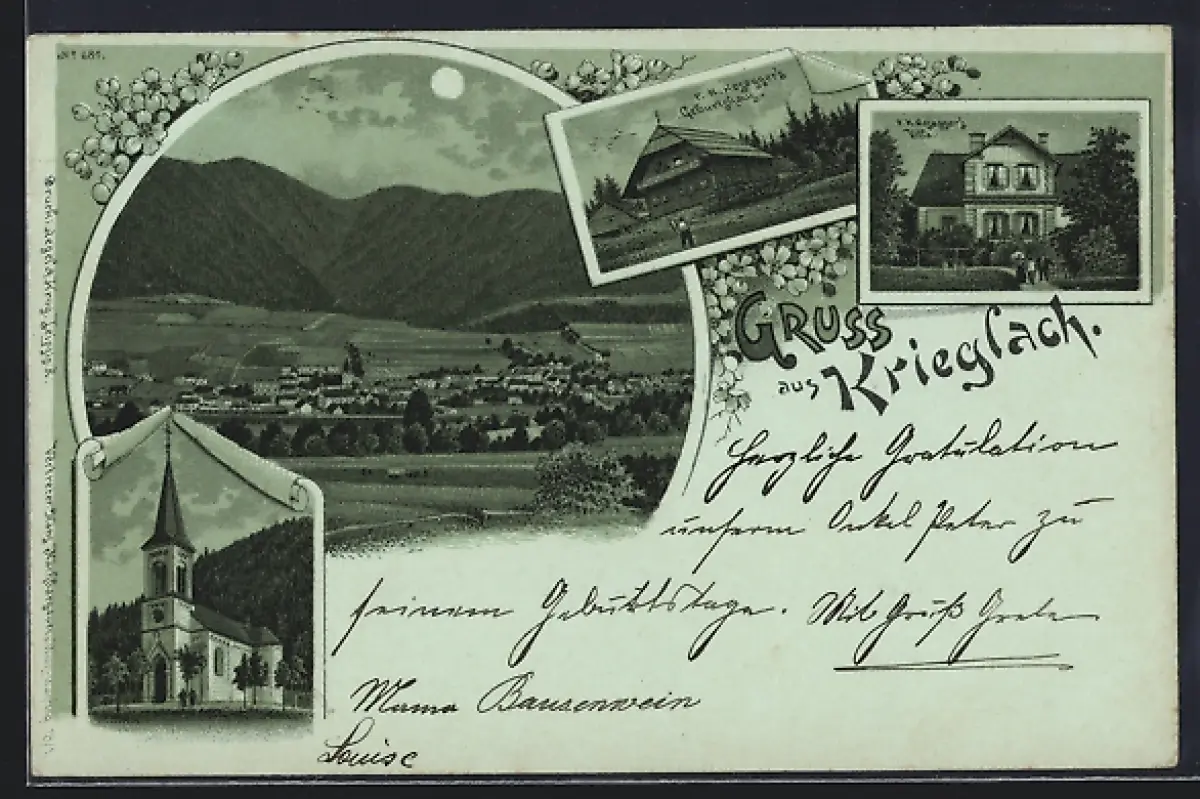 Nº 687.
P. K. Rosegger's
Geburtshaus
P. K. Rosegger's
Villa
GRUSS
aus Krieglach.
Herzliche Gratulation
unserm Onkel Peter zu
seinem Geburtstage. Mit Gruß Grete
Mama Bausenwein
Louise